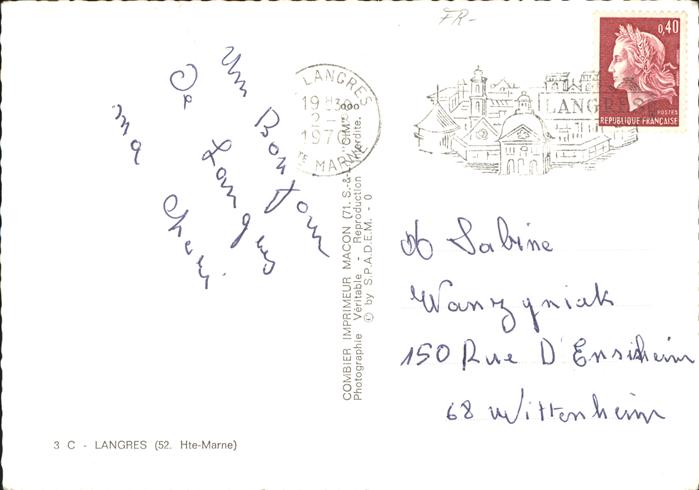 FR-
Un Bonjour
De Langres
ma Cheri
LANGRES
19 H30
2-
1970
HTE MARNE
LANGRES
0,40
POSTES
REPUBLIQUE FRANÇAISE
COMBIER IMPRIMEUR MACON (71. S.-&-L.) "CIM"
Photographie Véritable - Reproduction Interdite.
© by S.P.A.D.E.M. - 0
Sabine
Wanzyniak
150 Rue D'Ensisheim
68 Wittenheim
3 C - LANGRES (52. Hte-Marne)